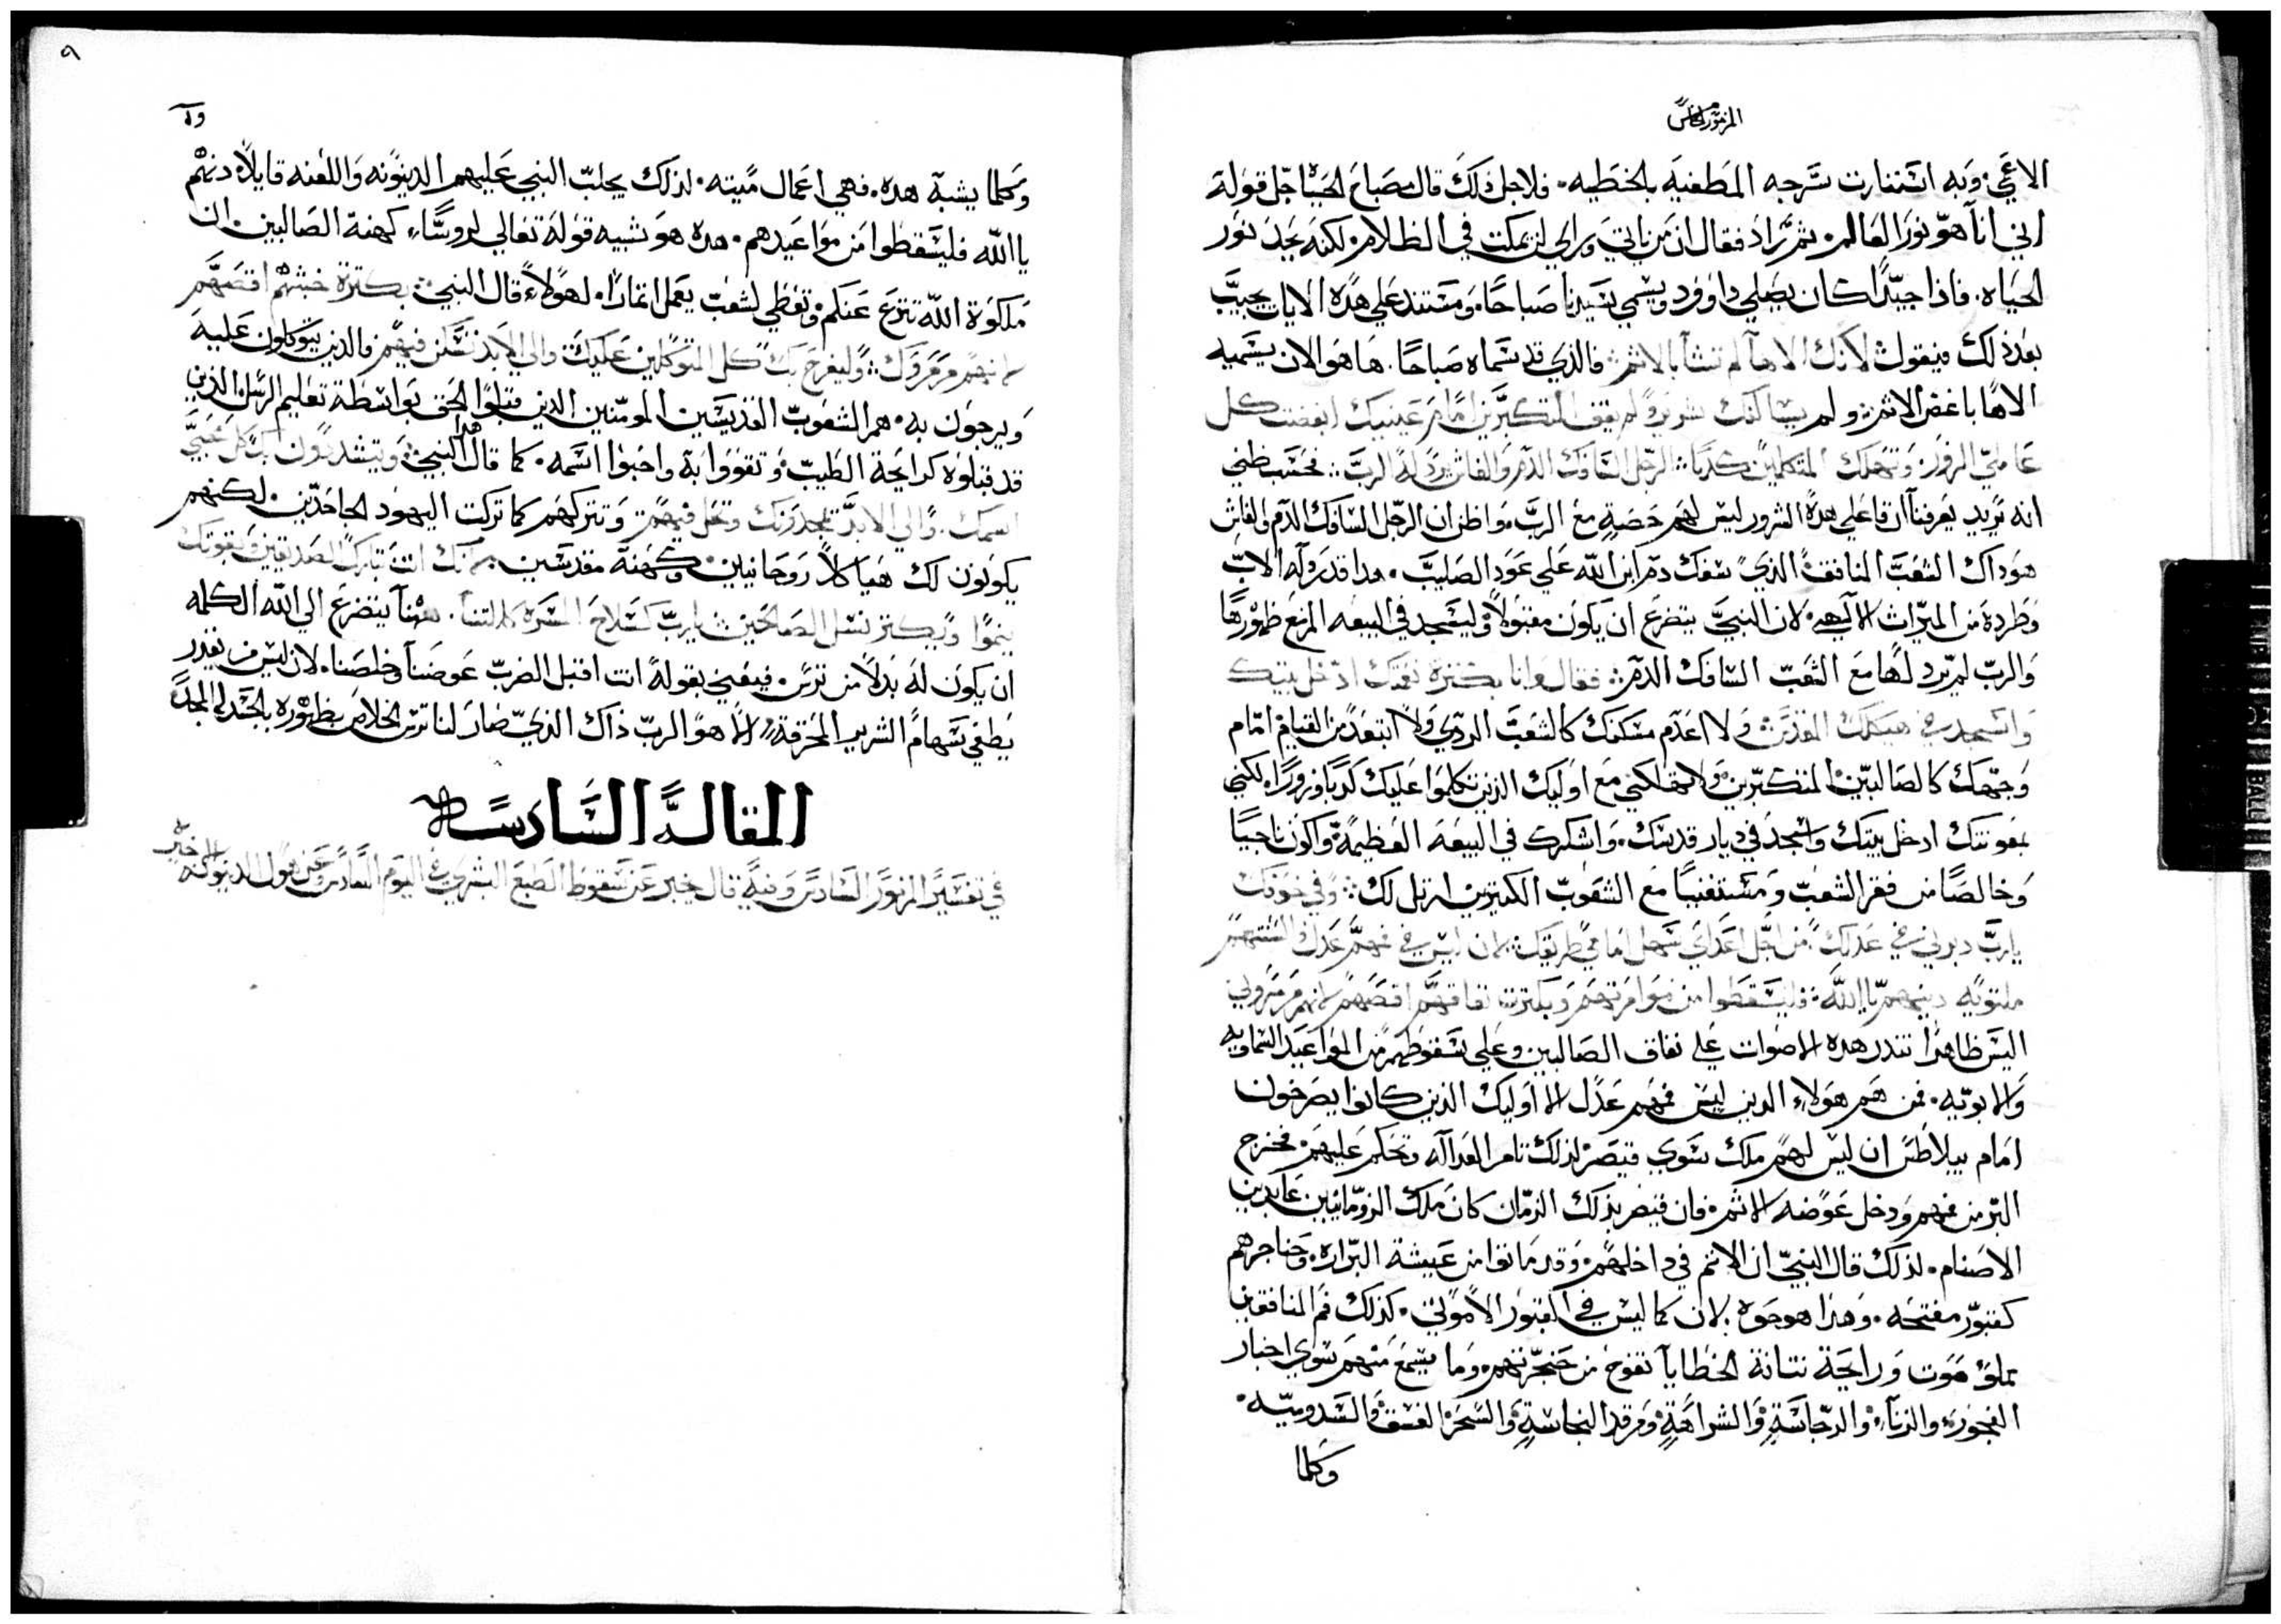 المزمور الخامس
الاعمي. وبه استنارت سرجه المطفيه بالخطيه. فلاجل ذلك قال مصباح الحيا جل قوله
اني انا هو نور العالم. ثم زاد فقال ان من ياتي وراي لن يمكت في الظلام. لكنه يجد نور
الحياه. فاذا جيدًا كان يصلي داوود ويسمي سيدنا صباحًا. ومستند علي هذه الايات يجيب
بعد ذلك فيقول لانك الاهآ لم تشآ بالاثم. فالذي قد سماه صباحًا. ها هو الان يسميه
الاهًا باغض الاثم. ولم يساكنك شرير ولم يقف المتكبرين امام عينيك ابغضت كل
عاملي الزور. وتهلك المتكلمين كدبًا. الرجل السافك الدم والغاش يرذله الرب. فحسب ظني
انه يريد يعرفنا ان فاعلي هذه الشرور ليس لهم حصة مع الرب. واظن ان الرجل السافك الدم والغاش
هو ذاك الشعب المنافق الذي سفك دم ابن الله علي عود الصليب. هدا قد رذله الاب
وطرده من الميراث الالهي. لان النبي يتضرع ان يكون مقبولاً وليسجد في البيعه المزمع ظهورها
والرب لم يرد لها مع الشعب السافك الدم. فقال وانا بكثرة نعمتك ادخل بيتك
واسجد في هيكلك المقدس. ولا اعدم مسكنك كالشعب الردي ولا ابتعد من القيام امام
وجهك كالصالبين المتكبرين. ولا تهلكني مع اوليك الذين تكلموا عليك كدبًا وزورًا. لكني
بمعونتك ادخل بيتك واسجد في ديار قدسك. واشكرك في البيعه العظيمة. واكون ناجيًا
وخالصًا من فقر الشعب ومستغنيًا مع الشعوب الكتيرين ارتل لك. وفي خوفك
يارب دبرني في عدلك. من اجل اعداي سهل امامي طريقك. لان ليس في فمهم عدل السنتهم
ملتويه دينهم يا الله. فليسقطوا من موامرتهم وبكثرة نفاقهم اقصهم لانهم مرمروني
اليس ظاهرًا تندر هده الاصوات علي نفاق الصالبين وعلي سقوطهم من المواعيد السماويه
والابويه. فمن هم هولاء الدين ليس فمهم عدل الا اوليك الذين كانوا يصرخون
امام بيلاطس ان ليس لهم ملك سوي قيصر. لذلك تامر العداله وتحكم عليهم. فخرج
البر من فمهم ودخل عوضه الاثم. فان قيصر بذلك الزمان كان ملك الرومانيين عابدين
الاصنام. لذلك قال النبي ان الاثم في داخلهم. وقد ماتوا من عيشة البراره. وحناجرهم
كقبور مفتحه. وهذا هو حقه. لان كما ليس في القبور الا موتي. كذلك فم المنافقين
مملو موت ورايحة نتانة الخطايآ تفوح من حنجرتهم. وما يسمع منهم سوي اخبار
الفجور. والزنآ. والدجاسة. والشراهة. ومرقد النجاسة. والسحر. الفسق والسدوميه.
وكلما
٩
وكلما يشبه هده. فهي اعمال ميته. لذلك يجلب النبي عليهم الدينونه واللعنه قايلاً دنهم
ياالله فليسقطوا من مواعيدهم. هده هو شبيه قوله تعالي لروساء كهنة الصالبين. ان
ملكوة الله تنزع عنكم وتعطي لشعب يعمل اتمارًا. لهولاء قال النبي. بكترة خبثهم اقصهم
لانهم مرمروك. وليفرح بك كل المتوكلين عليك والي الابد تسكن فيهم فالذين يتوكلون عليه
ويرجون به. هم الشعوب القديسين المومنين الدين قبلوا الحق بواسطة تعليم الرسل الذين
قد قبلوه كرايحة الطيب. وتقووا به واحبوا اسمه. كما قال النبي. ويتشددون بك كل محبي
اسمك. والي الابد بمجدونك وتحل فيهم. وتتركهم كما تركت اليهود الجاحدين. لكنهم
يكونون لك هياكلاً روحانيين. وكهنة مقدسين. لانك انت تبارك الصديقين وبقوتك
ينموا ويكتر نسل الصالحين. يارب كسلاح المسره كللتنا. ههنا يتضرع الي الله الكلمه
ان يكون له بدلاً من ترس. فيعني بقوله انت اقبل الضرب عوضنا وخلصنا. لان ليس من يقدر
يطفي سهام الشرير المحرقة. الا هو الرب ذاك الذي صار لنا ترس الخلاص بظهوره بالجسد له المجد
المقالة السادسة
في تفسير المزمور السادس وفيه قال خبر عن سقوط الطبع البشري في اليوم السادس وعن هول الدينونه الاخيره